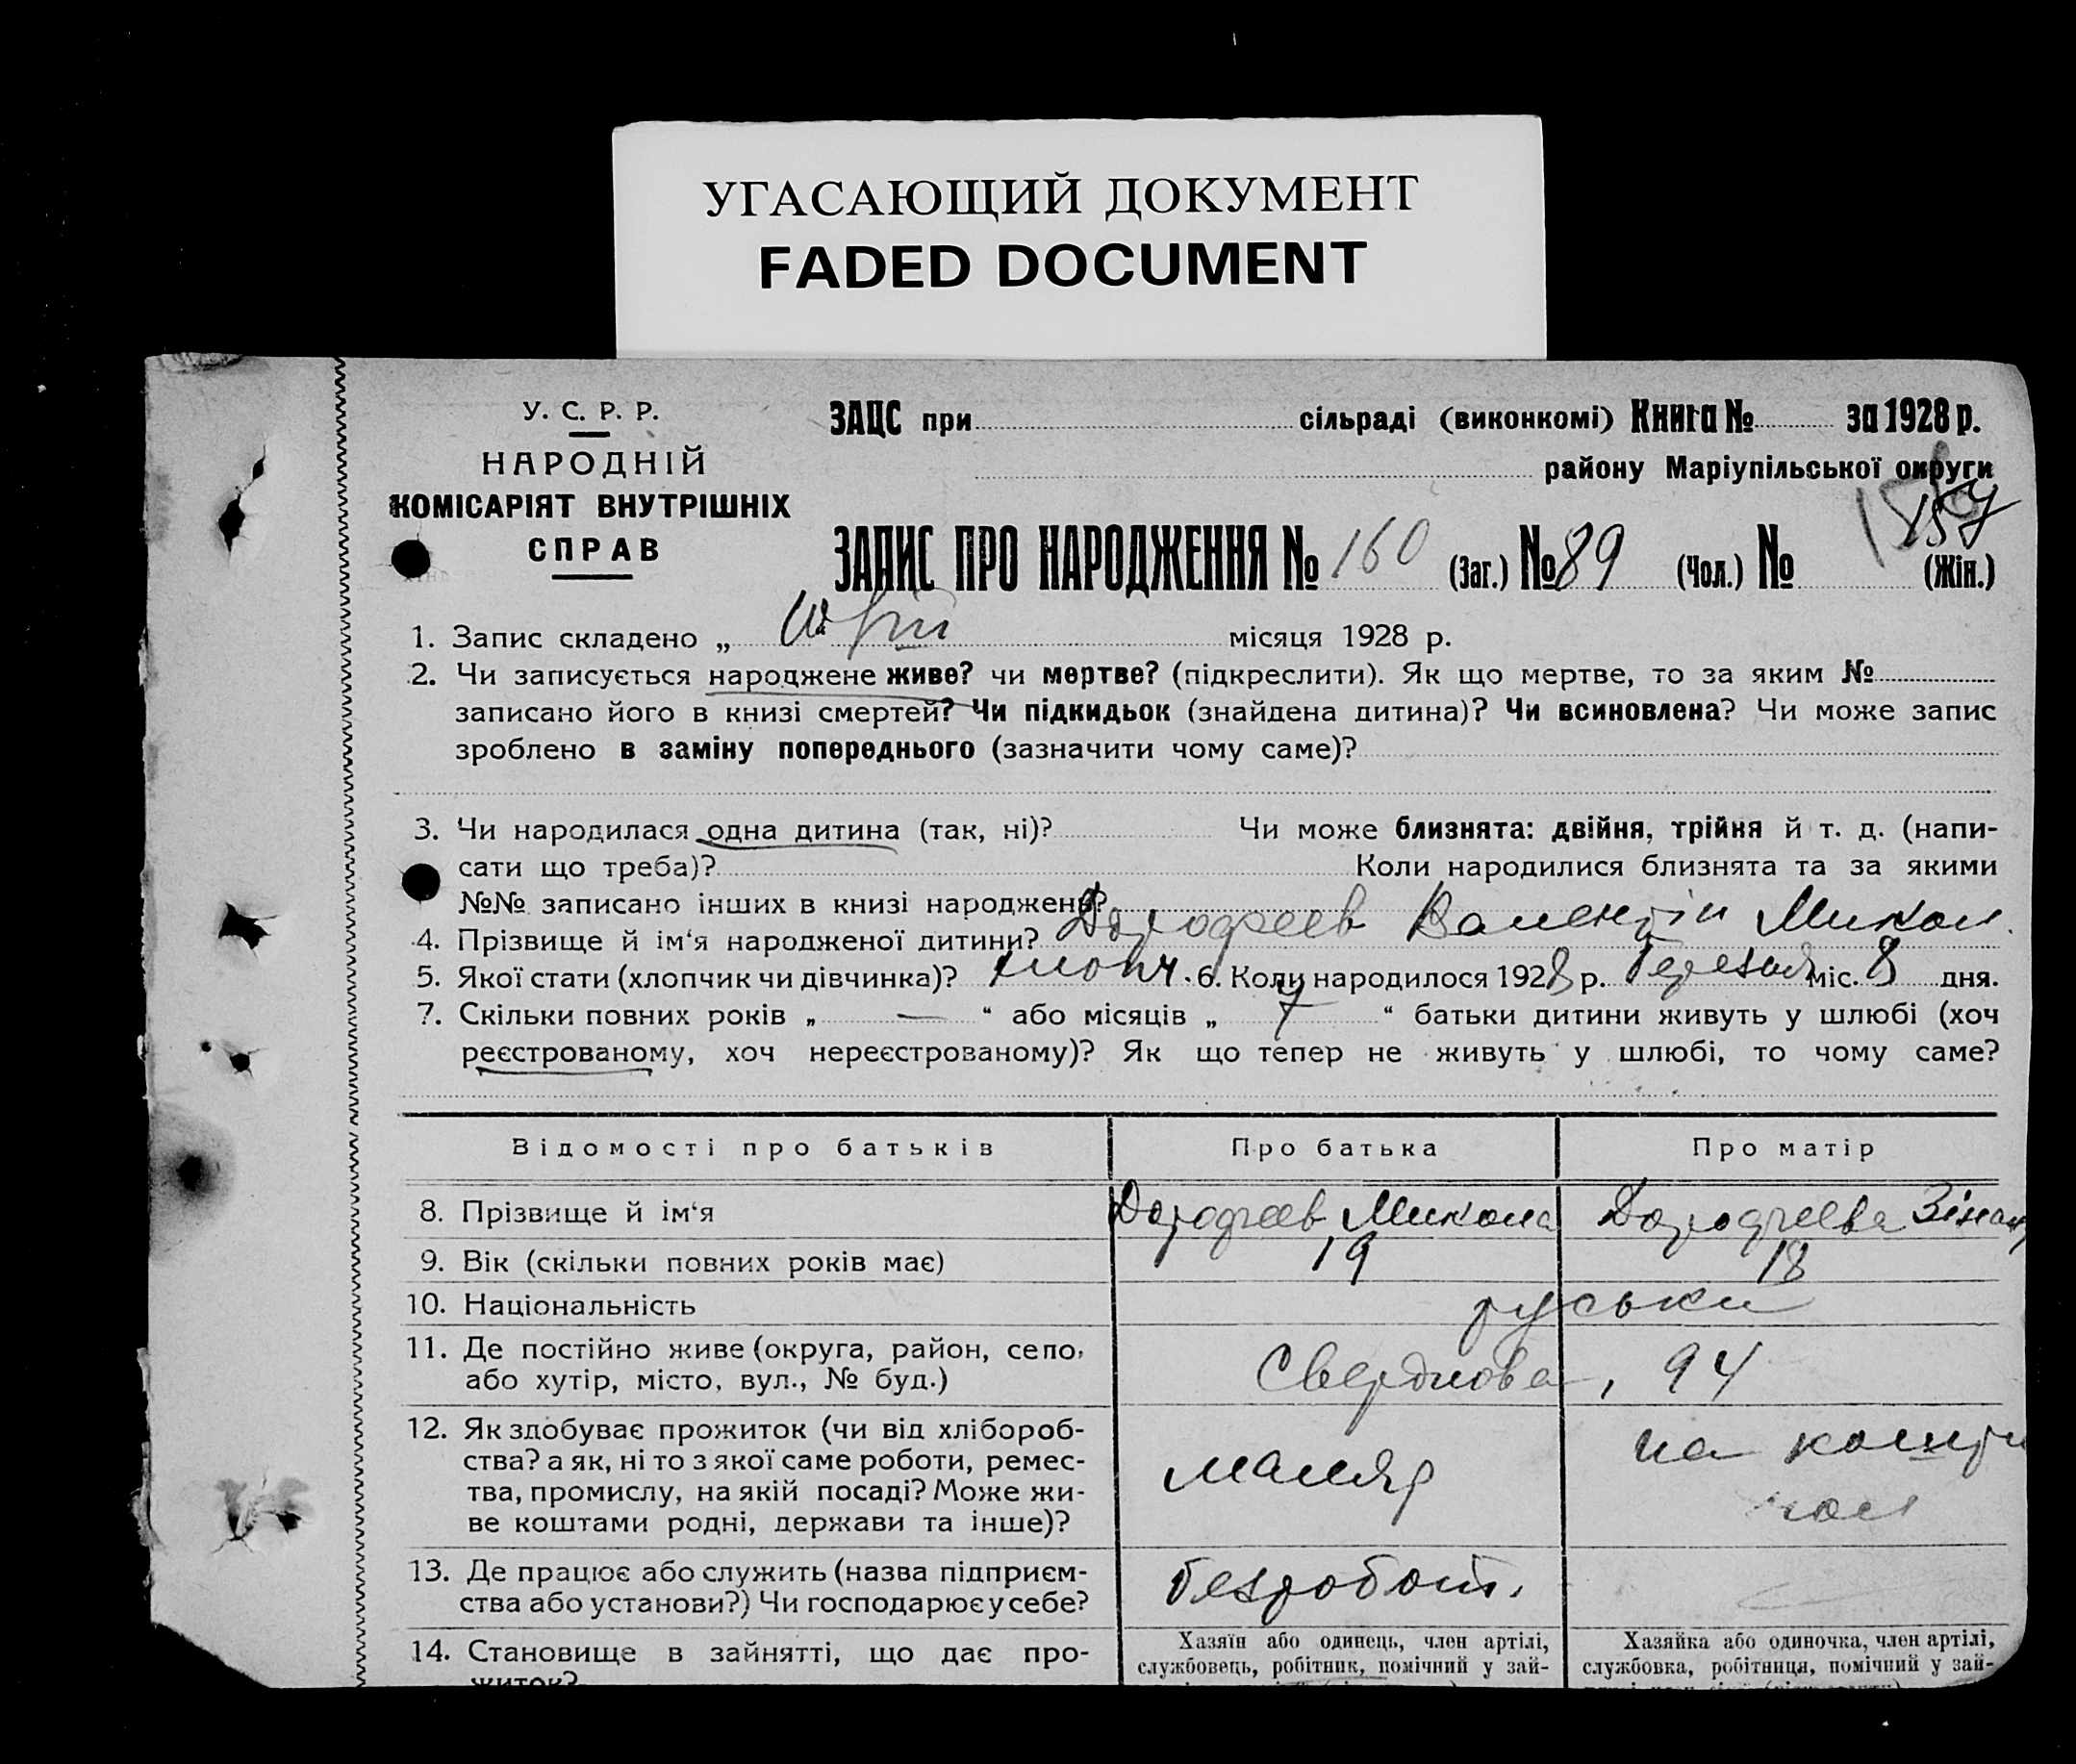 УГАСАЮЩИЙ ДОКУМЕНТ
FADED DOCUMENT
У. С. Р. Р.
НАРОДНІЙ
КОМІСАРІЯТ ВНУТРІШНІХ
СПРАВ
ЗАЦС при сільраді (виконкомі) Книга № за 1928 р.
району Маріупільської округи
157
ЗАПИС ПРО НАРОДЖЕННЯ № 160 (Заг.) № 89 (Чол.) № (Жін.)
1. Запис складено „ місяця 1928 р.
2. Чи записується народжене живе? чи мертве? (підкреслити). Як що мертве, то за яким №
записано його в книзі смертей? Чи підкидьок (знайдена дитина)? Чи всиновлена? Чи може запис
зроблено в заміну попереднього (зазначити чому саме)?
3. Чи народилася одна дитина (так, ні)? Чи може близнята: двійня, трійня й т. д. (напи-
сати що треба)? Коли народилися близнята та за якими
№№ записано інших в книзі народжень?
4. Прізвище й ім‘я народженої дитини? Дорофеев Валентін Микол.
5. Якої статі (хлопчик чи дівчинка)? хлопч. 6. Коли народилося 1928 р. березня міс. 8 дня.
7. Скільки повних років „ — “ або місяців „ 7 “ батьки дитини живуть у шлюбі (хоч
реєстрованому, хоч нереєстрованому)? Як що тепер не живуть у шлюбі, то чому саме?
Відомості про батьків Про батька Про матір
8. Прізвище й ім‘я Дорофеев Микола Дорофеева Зінаї
9. Вік (скільки повних років має) 19 18
10. Національність руськи
11. Де постійно живе (округа, район, село,
або хутір, місто, вул., № буд.) Свердлова, 94
12. Як здобуває прожиток (чи від хлібороб-
ства? а як, ні то з якої саме роботи, ремес-
тва, промислу, на якій посаді? Може жи-
ве коштами родні, держави та інше)?
маляр
на кошти
чол
13. Де працює або служить (назва підприєм-
ства або установи?) Чи господарює у себе?
безробот.
14. Становище в зайнятті, що дає про-
житок?
Хазяїн або одинець, член артілі,
службовець, робітник, помічний у зай-
Хазяйка або одиночка, член артілі,
службовка, робітниця, помічний у зай-